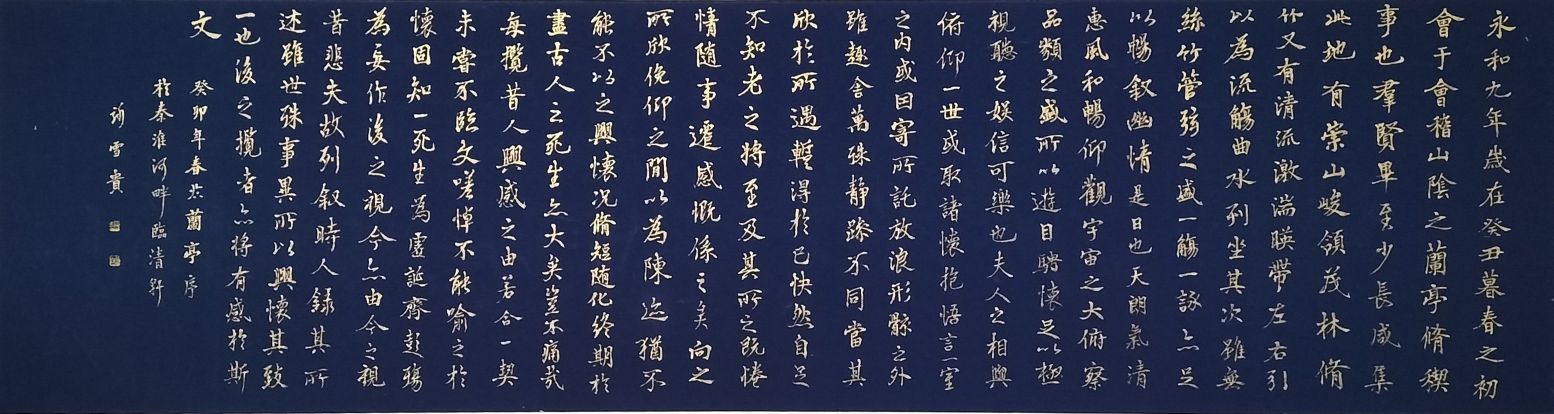 永和九年歲在癸丑暮春之初
會于會稽山陰之蘭亭脩禊
事也羣賢畢至少長咸集
此地有崇山峻領茂林脩
竹又有清流激湍暎帶左右引
以為流觴曲水列坐其次雖無
絲竹管弦之盛一觴一詠亦足
以暢叙幽情是日也天朗氣清
惠風和暢仰觀宇宙之大俯察
品類之盛所以遊目騁懷足以極
視聽之娛信可樂也夫人之相與
俯仰一世或取諸懷抱悟言一室
之內或因寄所託放浪形骸之外
雖趣舍萬殊静躁不同當其
欣於所遇蹔得於己怏然自足
不知老之將至及其所之既惓
情隨事遷感慨係之矣向之
所欣俛仰之間以為陳迹猶不
能不以之興懷況脩短隨化終期於
盡古人云死生亦大矣豈不痛哉
每攬昔人興感之由若合一契
未嘗不臨文嗟悼不能喻之於
懷固知一死生為虛誕齊彭殤
為妄作後之視今亦由今之視
昔悲夫故列叙時人錄其所
述雖世殊事異所以興懷其致
一也後之攬者亦將有感於斯
文
癸卯年春蘭亭序
於秦淮河畔臨清軒
雪貴